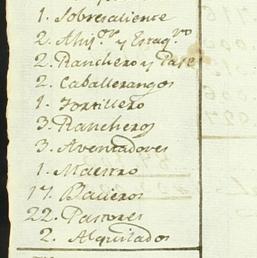 1. Sobresaliente
2. Ahij.or y Estaq.ro
2. Ranchero y Pase
2. Caballerangos
1. Tortillero
3. Rancheros
3. Aventadores
1. Maestro
17. Baqueros
22. Pastores
2. Alquilados